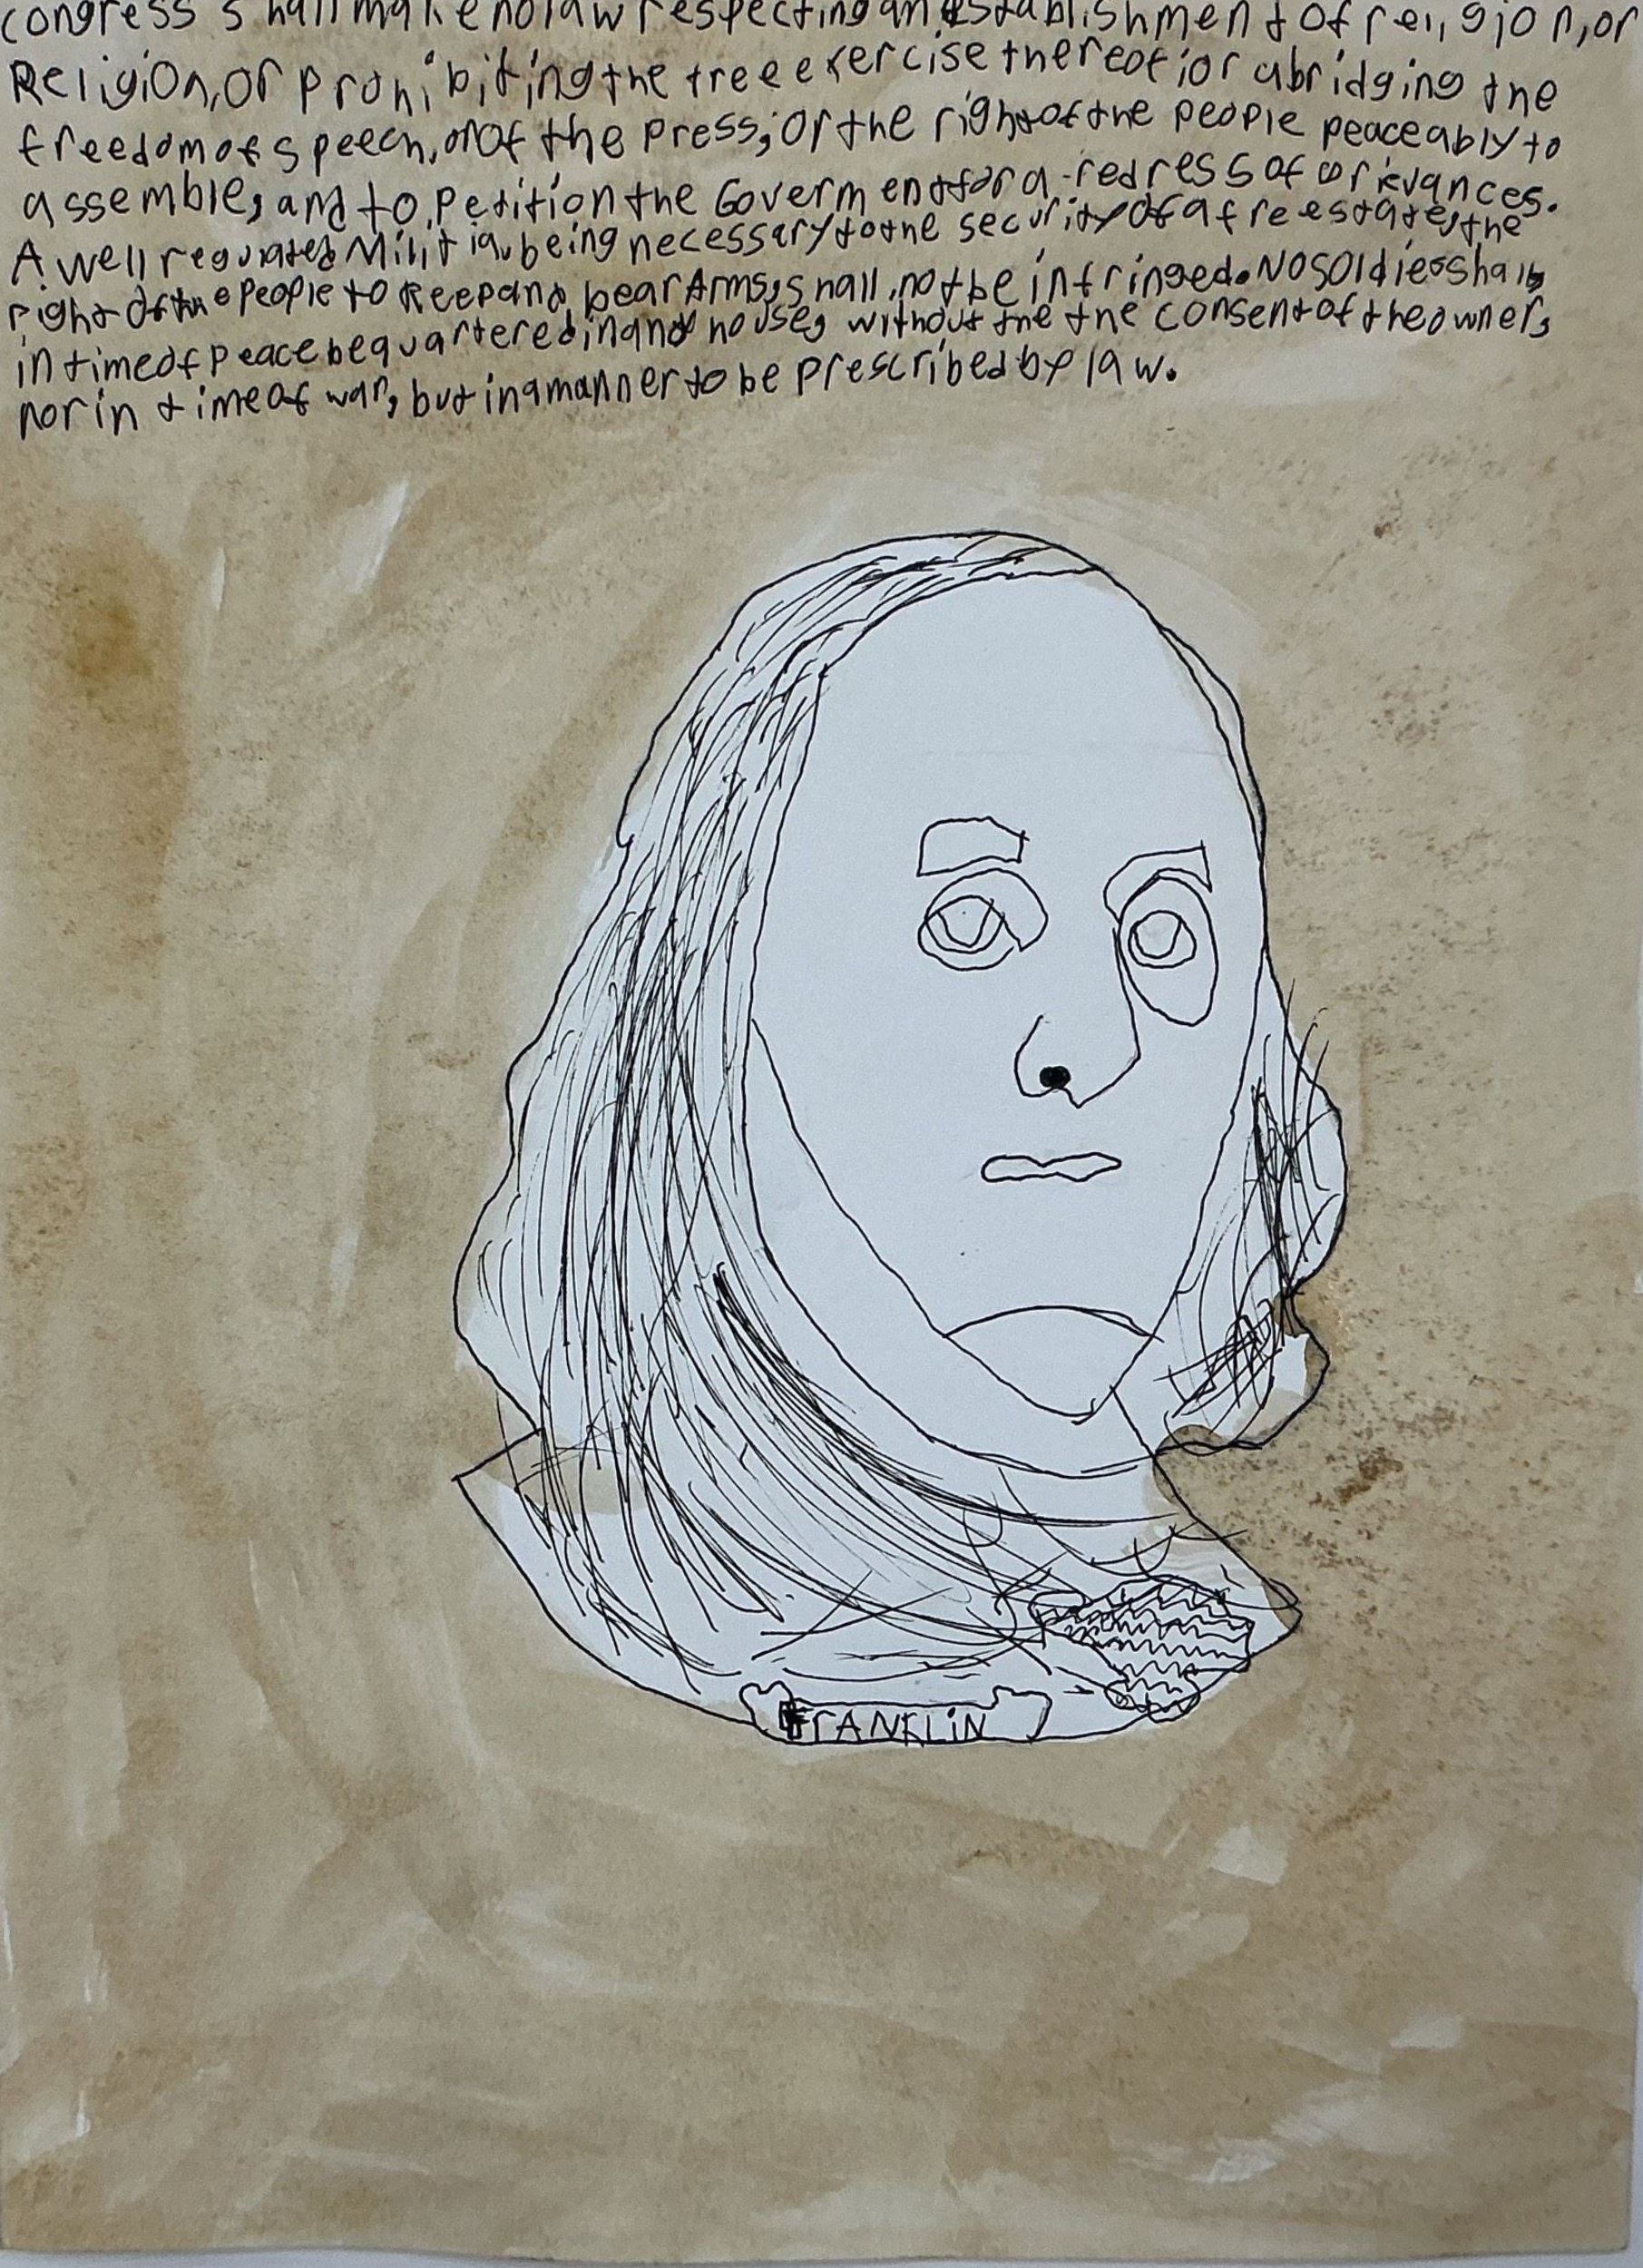 congress shall make no law respecting an establishment of religion, or
Religion, or prohibiting the free exercise thereof; or abridging the
freedom of speech, or of the press; or the right of the people peaceably to
assemble, and to petition the Goverment for a redress of Grievances.
A well regulated Militia, being necessary to the security of a free state, the
right of the people to keep and bear Arms, shall not be infringed. No soldier shall,
in time of peace be quartered in and house, without the the consent of the owner,
nor in time of war, but in a manner to be prescribed by law.
FrANKLiN